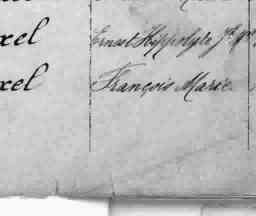 xel Ernest Hyppolyte J.h
xel François Marie